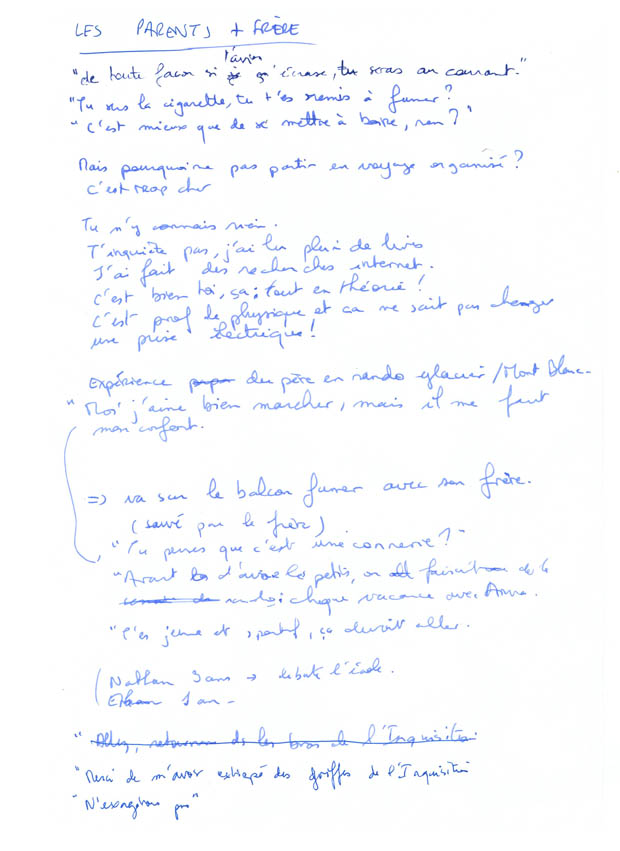 LES PARENTS + FRÈRE
l'avion
"de toute façon si je s'écrase, tu seras au courant."
"Tu sens la cigarette, tu t'es remis à fumer?
"C'est mieux que de se mettre à boire, non?"
Mais pourquoi ne pas partir en voyage organisé?
C'est trop cher
Tu n'y connais rien.
T'inquiète pas, j'ai lu plein de livres
J'ai fait des recherches internet.
C'est bien toi, ça; tout en théorie!
C'est prof de physique et ça ne sait pas changer
une prise électrique!
Expérience du père en rando glacier/Mont Blanc.
"Moi j'aime bien marcher, mais il me faut
mon confort.
=> va sur le balcon fumer avec son frère.
(sauvé par le frère)
"Tu penses que c'est une connerie?"
"Avant d'avoir les petits, on faisait de la
rando chaque vacance avec Anna.
"T'es jeune et sportif, ça devrait aller.
(Nathan 3 ans → débute l'école.
Ethan 1 an -
"Allez, retourne ds les bras de l'Inquisition.
"Merci de m'avoir extirpé des griffes de l'Inquisition
"N'exagérons pas"